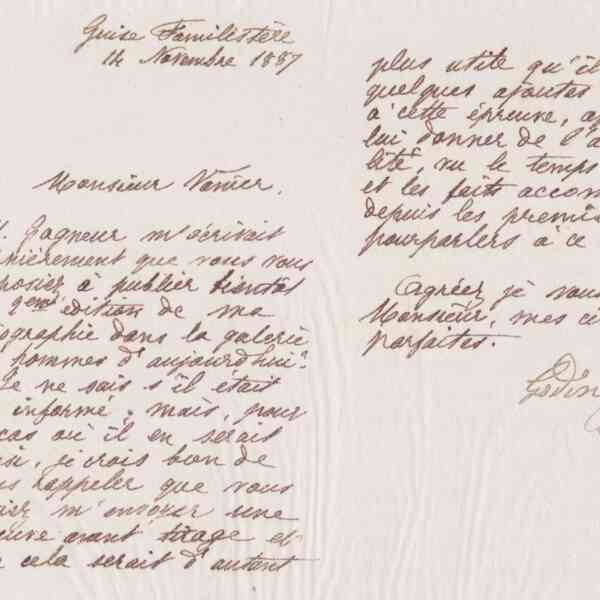 Guise Familistère
14 Novembre 1887
Monsieur Vanier,
Gagneur m'écrivait
nièrement que vous vous
posiez à publier bientôt
édition de ma
ographie dans la galerie
hommes d'aujourd'hui".
Je ne sais s'il était
informé; mais, pour
cas où il en serait
si, je crois bon de
us rappeler que vous
m'envoyer une
euve avant tirage et
cela serait d'autant
plus utile qu'il
quelques ajoutés
à cette épreuve, a
lui donner de l'a
lité, vu le temps
et les faits accom
depuis les premie
pourparlers à ce
Agréez je vous
Monsieur, mes ci
parfaites.
Godin